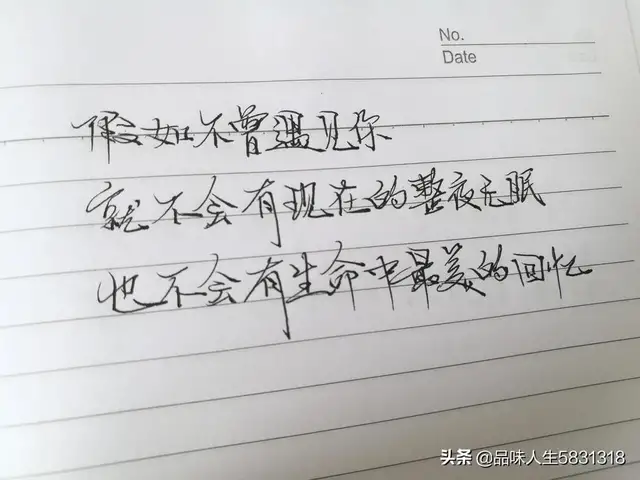 No.
Date
假如不曾遇见你
就不会有现在的整夜无眠
也不会有生命中最美的回忆
头条 @品味人生5831318